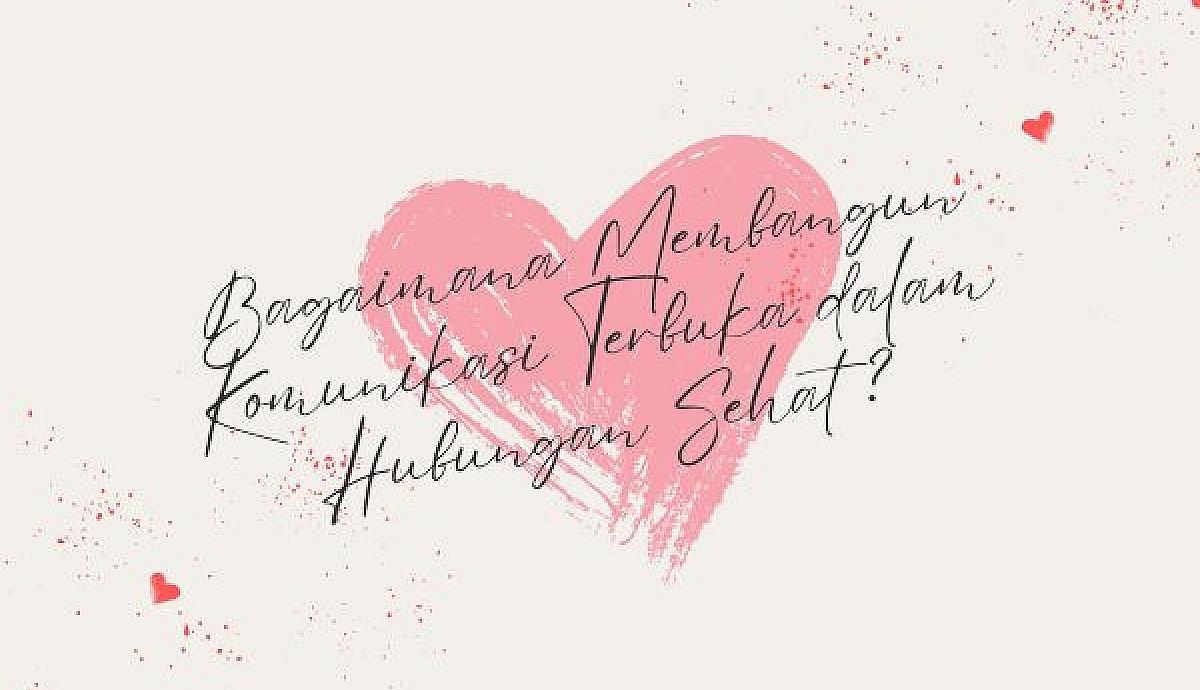 Bagaimana Membangun
Komunikasi Terbuka dalam
Hubungan Sehat?